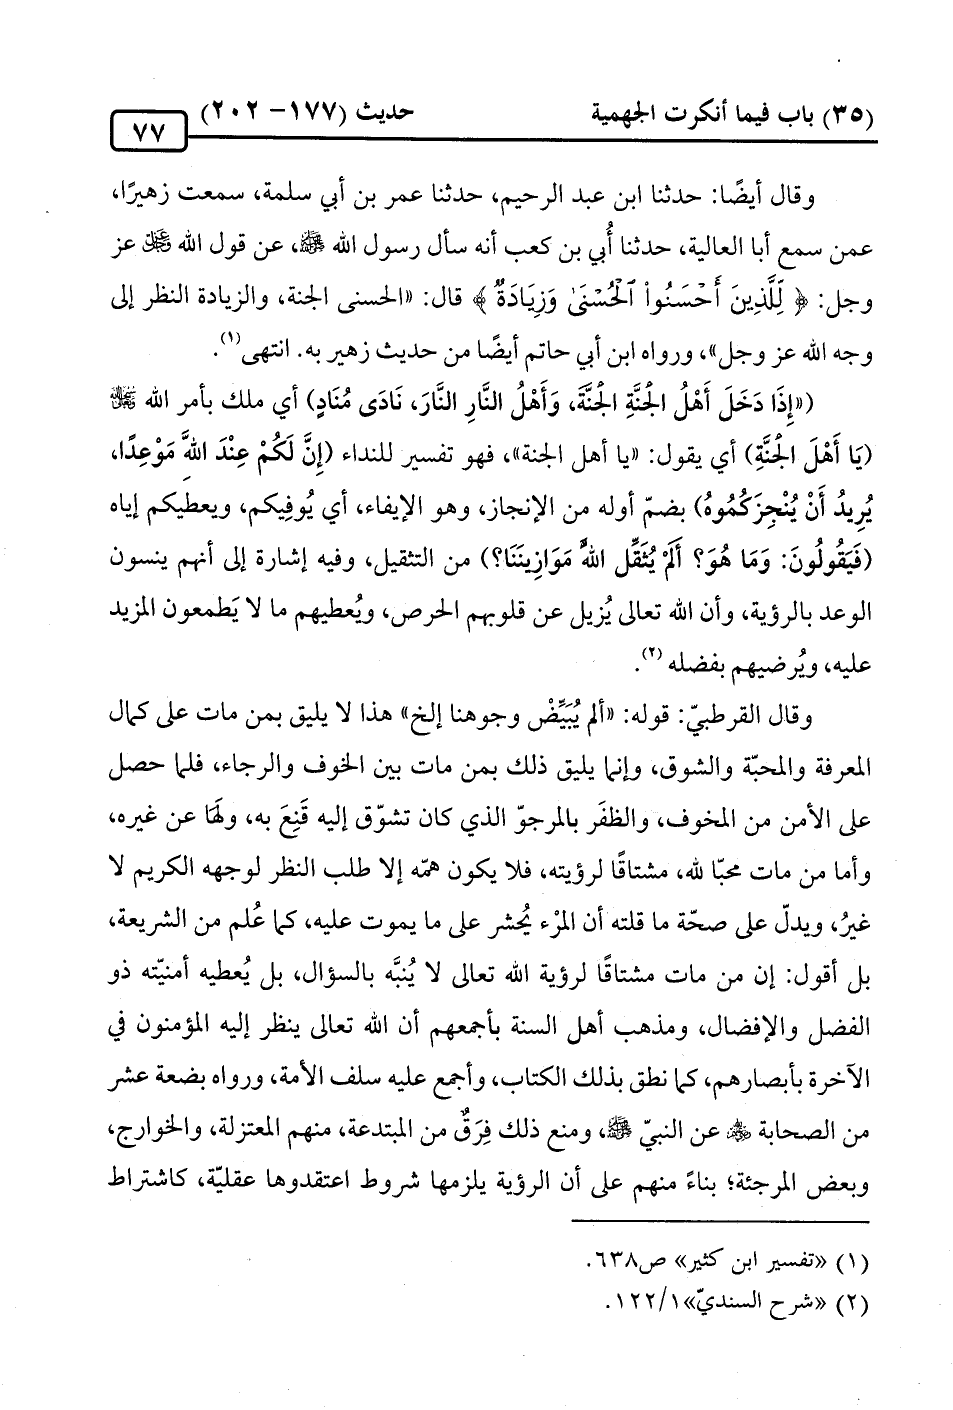 (٣٥) باب فيما أنكرت الجهمية حديث (١٧٧- ٢٠٢)
٧٧
وقال أيضًا: حدثنا ابن عبد الرحيم، حدثنا عمر بن أبي سلمة، سمعت زهيرًا،
عمن سمع أبا العالية، حدثنا أُبي بن كعب أنه سأل رسول الله ﷺ، عن قول الله ﷻ عز
وجل: ﴿ لِّلَّذِينَ أَحْسَنُوا۟ ٱلْحُسْنَىٰ وَزِيَادَةٌ ﴾ قال: «الحسنى الجنة، والزيادة النظر إلى
وجه الله عز وجل»، ورواه ابن أبي حاتم أيضًا من حديث زهير به. انتهى(١).
(«إِذَا دَخَلَ أَهْلُ الجَنَّةِ الجَنَّةَ، وَأَهْلُ النَّارِ النَّارَ، نَادَى مُنَادٍ) أي ملك بأمر الله
(يَا أَهْلَ الجَنَّةِ) أي يقول: «يا أهل الجنة»، فهو تفسير للنداء (إِنَّ لَكُمْ عِنْدَ اللهِ مَوْعِدًا،
يُرِيدُ أَنْ يُنْجِزَكُمُوهُ) بضمّ أوله من الإنجاز، وهو الإيفاء، أي يُوفِيكم، ويعطيكم إياه
(فَيَقُولُونَ: وَمَا هُوَ؟ أَلَمْ يُثَقِّلِ اللهُ مَوَازِينَنَا؟) من التثقيل، وفيه إشارة إلى أنهم ينسون
الوعد بالرؤية، وأن الله تعالى يُزيل عن قلوبهم الحرص، ويُعطيهم ما لا يَطمعون المزيد
عليه، ويُرضيهم بفضله (٢).
وقال القرطبيّ: قوله: «ألم يُبَيِّضْ وجوهنا إلخ» هذا لا يليق بمن مات على كمال
المعرفة والمحبّة والشوق، وإنما يليق ذلك بمن مات بين الخوف والرجاء، فلما حصل
على الأمن من المخوف، والظفَر بالمرجوّ الذي كان تشوّق إليه قَنِعَ به، ولَهَا عن غيره،
وأما من مات محبّا لله، مشتاقًا لرؤيته، فلا يكون همّه إلا طلب النظر لوجهه الكريم لا
غيرُ، ويدلّ على صحّة ما قلته أن المرْء يُحشر على ما يموت عليه، كما عُلم من الشريعة،
بل أقول: إن من مات مشتاقًا لرؤية الله تعالى لا يُنبَّه بالسؤال، بل يُعطيه أمنيّته ذو
الفضل والإفضال، ومذهب أهل السنة بأجمعهم أن الله تعالى ينظر إليه المؤمنون في
الآخرة بأبصارهم، كما نطق بذلك الكتاب، وأجمع عليه سلف الأمة، ورواه بضعة عشر
من الصحابة ﷺ عن النبيّ ﷺ، ومنع ذلك فِرَقٌ من المبتدعة، منهم المعتزلة، والخوارج،
وبعض المرجئة؛ بناءً منهم على أن الرؤية يلزمها شروط اعتقدوها عقليّة، كاشتراط
(١) «تفسير ابن كثير» ص٦٣٨.
(٢) «شرح السنديّ»١٢٢/١.